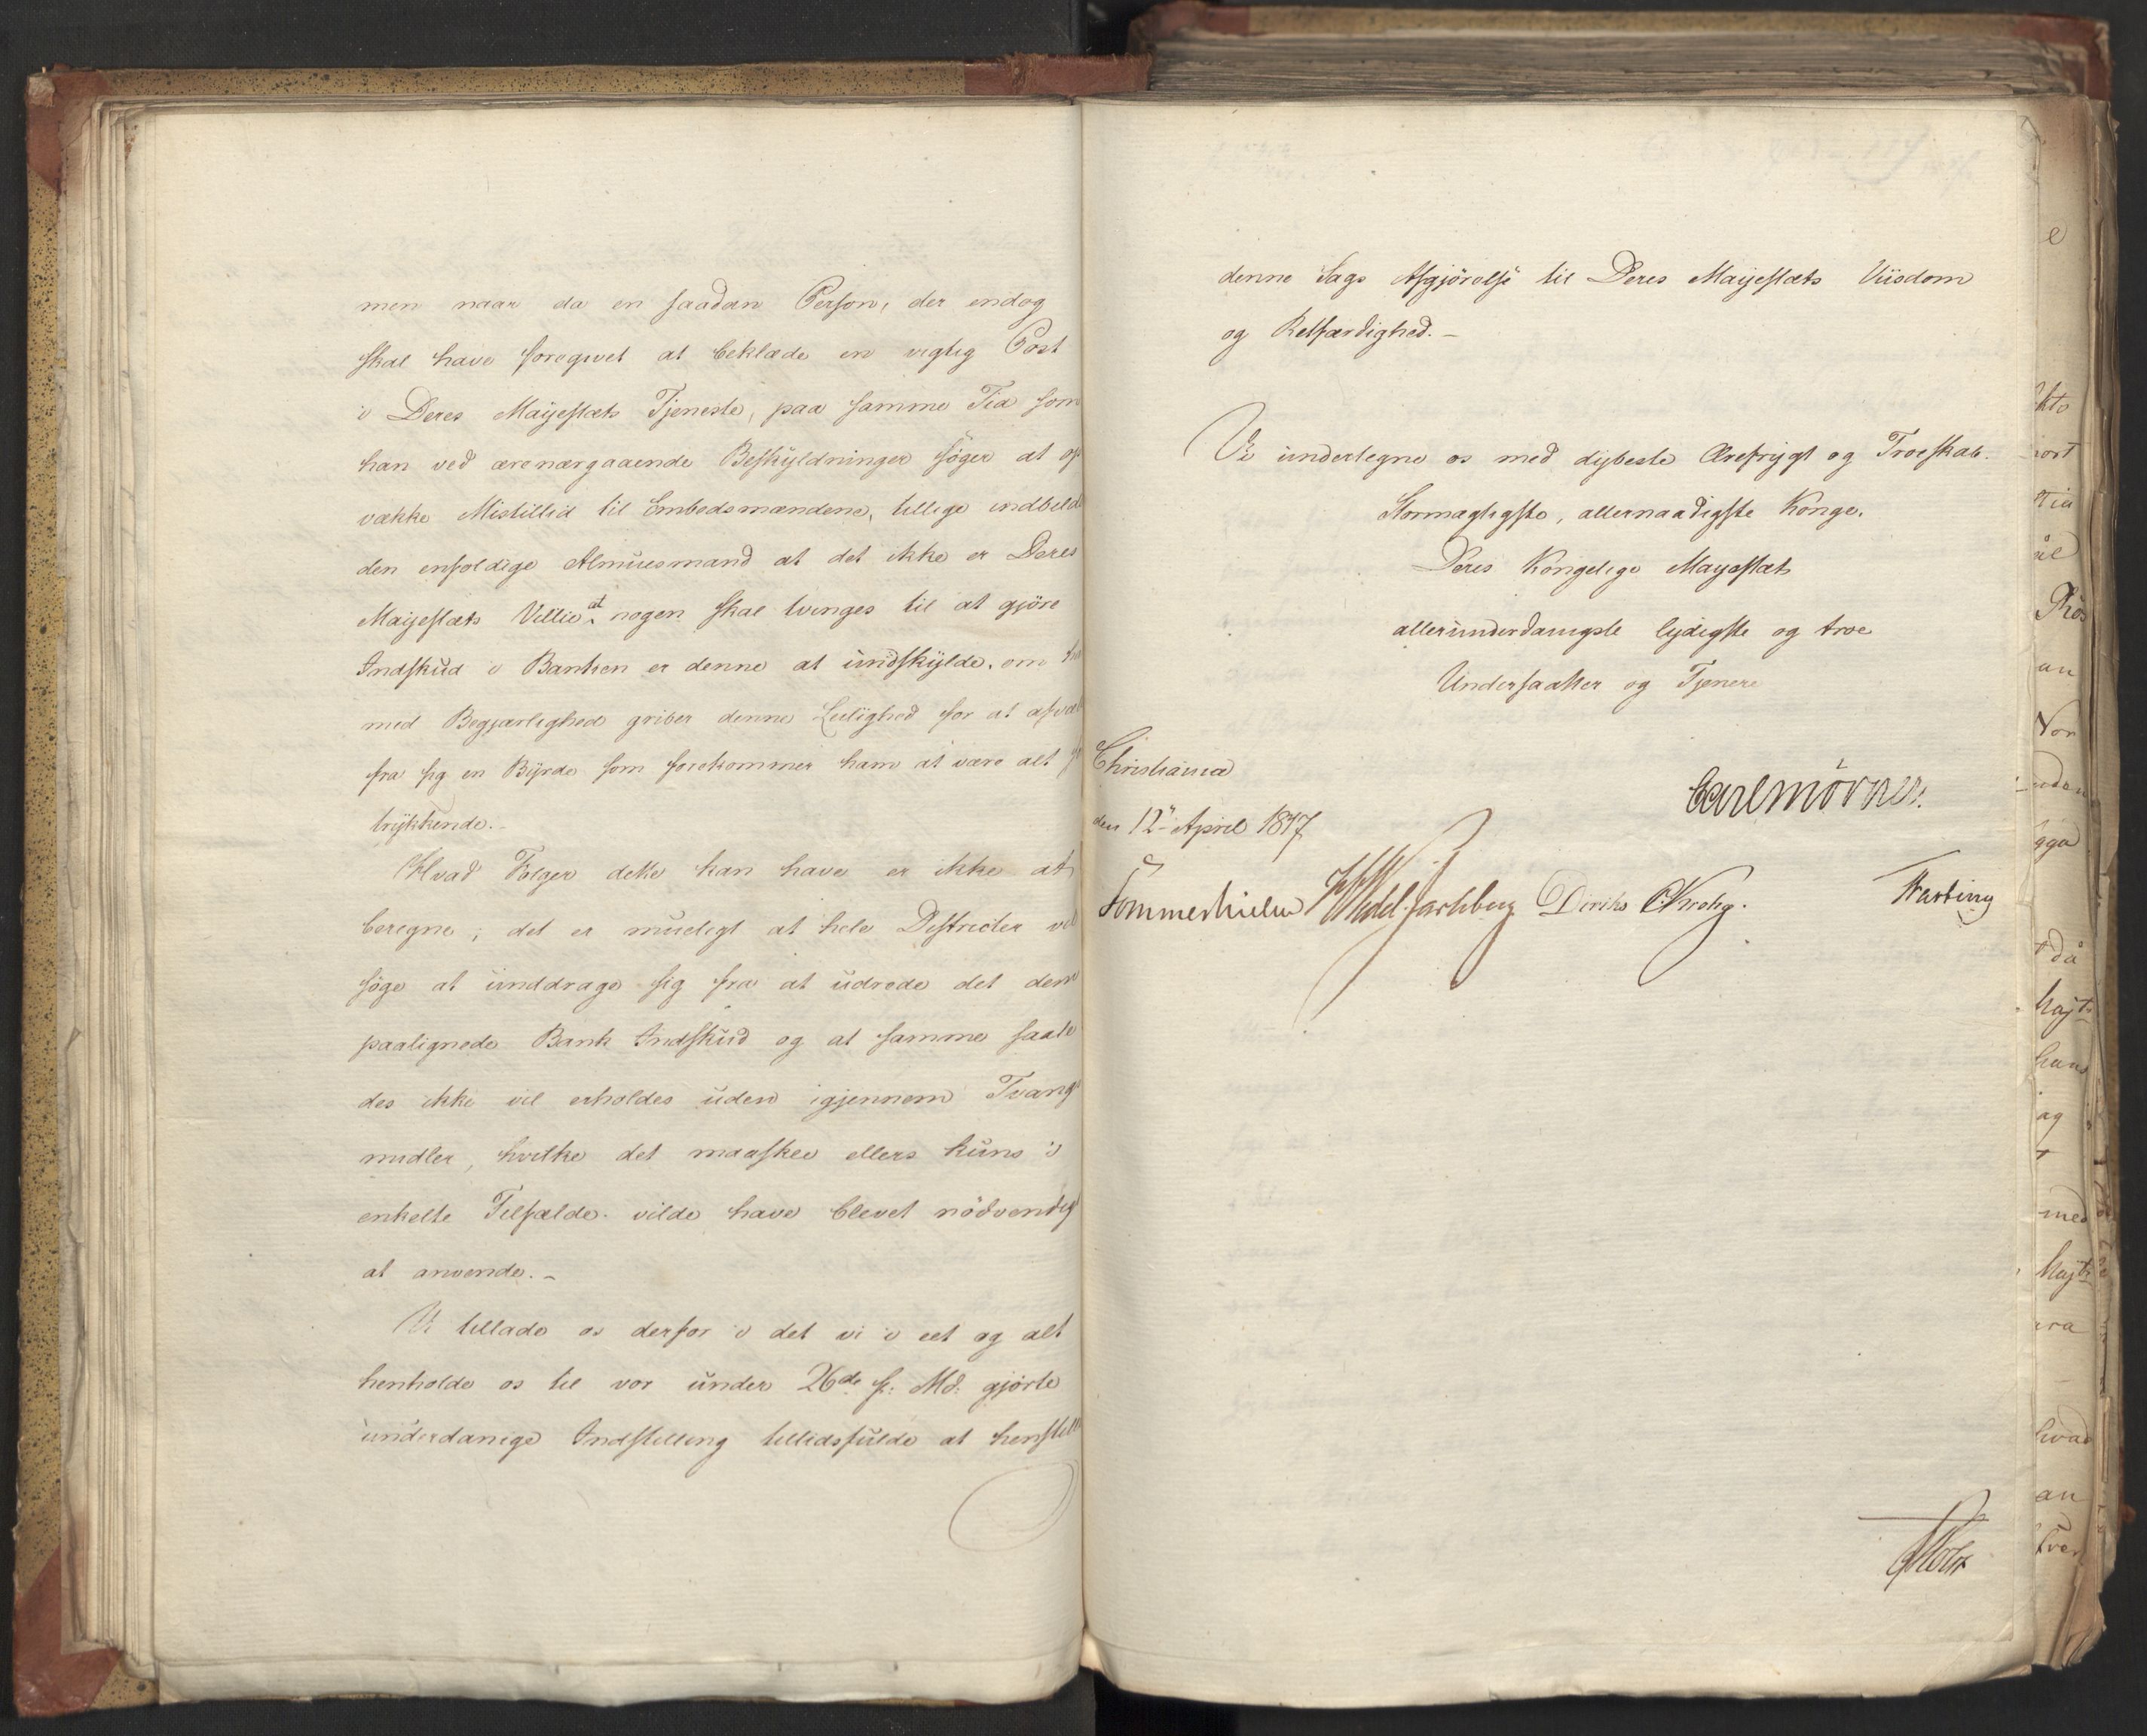 men naar da en saadan Person, der endog
skal have foregivet at beklæde en vigtig Post
i Deres Mayestæts Tjeneste, paa samme Tid som
han ved ærenærgaaende Beskyldninger søger at op
vække Mistillid til Embedsmændene, tillige indbilde
den enfoldige Almuesmand at det ikke er Deres
Mayestæts Villie at nogen skal tvinges til at gjöre
Indskud i Banken er denne at undskylde, om
med Begjærlighed griber denne Leilighed for at afvæl
fra sig en Byrde som forekommer ham at være alt
trykkende.
Hvad Følger dette kan have er ikke at
beregne; det er mueligt at hele Districter vil
söge at unddrage sig fra at udrede det dem
paalignede Bank Indskud og at samme saale
des ikke vil erholdes uden igjennem Tvangs
midler, hvilke det maaskee ellers kuns i
enkelte Tilfælde vilde have blevet nödvendig
at anvende.-
Vi tillade os derfor i det vi i eet og alt
henholde os til vor under 26de f: Md: gjorte
underdanige Indstilling tillidsfulde at henstille
denne Sags Afgjörelse til Deres Mayestæts Viisdom
og Retfærdighed.-
Vi undertegne os med dybeste Ærefrygt og Troeskab.
Stormægtigste, allernaadigste Konge.
Deres Kongelige Mayestæts
allerunderdanigste lydigste og troe
Undersaatter og Tjenere
Christiania
den 12te April 1817
Carl Mörner.
Sommerhielm HWedel Jarlsberg Diriks CKrohg. Fasting
Holst